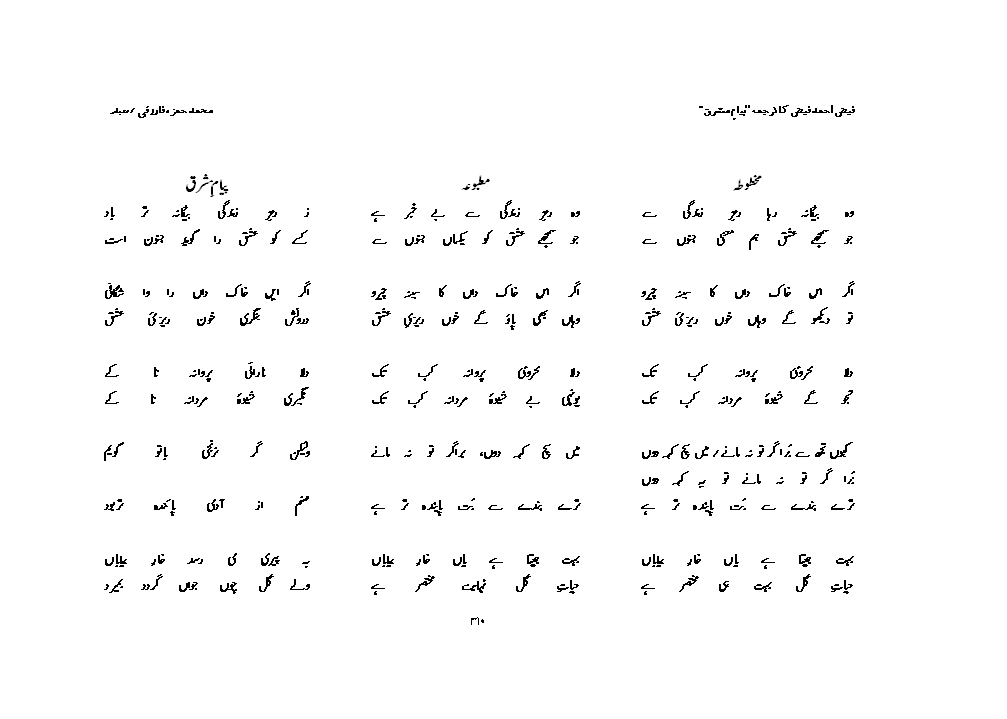 فیض احمد فیض کا ترجمہ "پیامِ مشرق"
محمد حمزہ فاروقی /
مخطوطہ
وہ بیگانہ رہا رمزِ زندگی سے
جو سمجھے عشق ہم معنی جنوں سے
اگر اس خاک داں کا سینہ چیرو
تو دیکھو گے وہاں خوں ریزیِ عشق
دلا محرومیِ پروانہ کب تک
تجو گے شیوۂ مردانہ کب تک
کیوں تجھ سے بُرا گر تو نہ مانے / میں سچ کہہ دوں
بُرا گر تو نہ مانے تو یہ کہہ دوں
ترے بندے سے بُت پایندہ تر ہے
بہت جیتا ہے یاں خارِ بیاباں
حیاتِ گل بہت ہی مختصر ہے
مطبوعہ
وہ رمزِ زندگی سے بے خبر ہے
جو سمجھے عشق کو یکساں جنوں سے
اگر اس خاک داں کا سینہ چیرو
وہاں بھی پاؤ گے خوں ریزیِ عشق
دلا محرومیِ پروانہ کب تک
یونہی بے شیوۂ مردانہ کب تک
میں سچ کہہ دوں، بُرا گر تو نہ مانے
ترے بندے سے بُت پایندہ تر ہے
بہت جیتا ہے یاں خارِ بیاباں
حیاتِ گل نہایت مختصر ہے
پیامِ مشرق
ز رمزِ زندگی بیگانہ تر باد
کسے کو عشق را گوید جنون است
اگر ایں خاک داں را وا شگافی
درونش بنگری خون ریزیِ عشق
دلا نارائی پروانہ تا کے
نگیری شیوۂ مردانہ تا کے
ولیکن گر نرنجی باتو گویم
صنم از آدمی پائندہ تر بود
بہ پیری می رسد خارِ بیاباں
ولے گل چوں جواں گردد بمیرد
۳۱۰